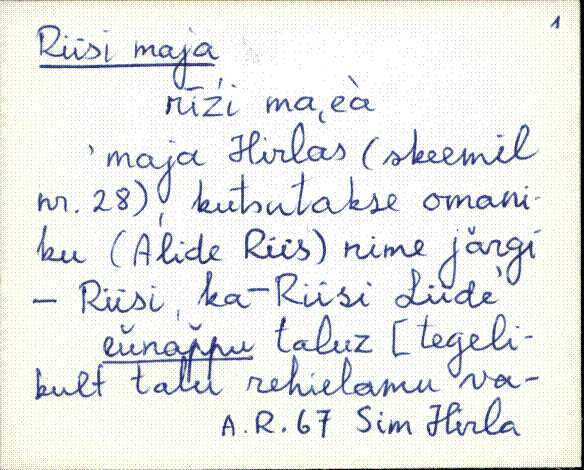 1
Riisi maja
rīźi ma͔eà
'maja Hirlas (skeemil
nr. 28), kutsutakse omani-
ku (Alide Riis) nime järgi
– Riisi, ka – Riisi Liide
eŭnap̆pu taluz [tegeli-
kult talu rehielamu va-
A.R. 67 Sim Hirla